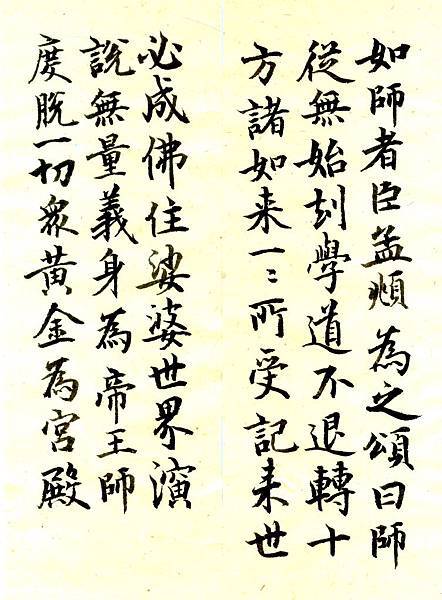 如師者臣孟頫為之頌曰師
從無始刻學道不退轉十
方諸如来一〻所受記来世
必成佛住娑婆世界演
說無量義身為帝王師
度脫一切眾黃金為宮殿